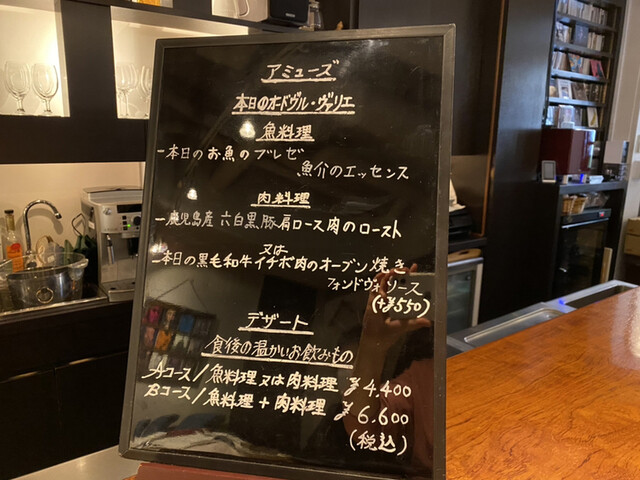 アミューズ
本日のオードヴル・ヴァリエ
魚料理
ー本日のお魚のブレゼ
魚介のエッセンス
肉料理
ー鹿児島産 六白黒豚肩ロース肉のロースト
又は
ー本日の黒毛和牛イチボ肉のオーブン焼き
フォンドヴォソース
(+¥550)
デザート
食後の温かいお飲みもの
Aコース/魚料理又は肉料理 ¥4,400
Bコース/魚料理+肉料理 ¥6,600
(税込)